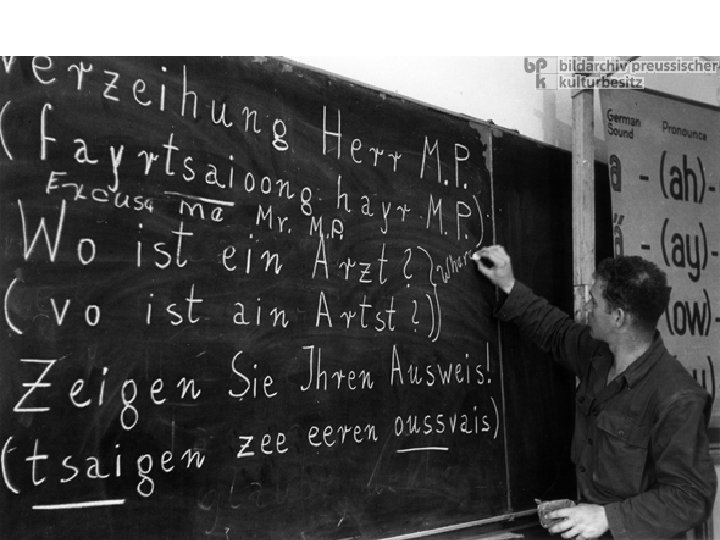 bpk bildarchiv preussischer
kulturbesitz
Verzeihung Herr M.P.
(fayrtsaioong hayr M.P.)
Excuse me Mr. M.P.
Wo ist ein Arzt?
(vo ist ain Artst?)
Zeigen Sie Ihren Ausweis!
(tsaigen zee eeren oussvais)
German Sound
Pronounce
a - (ah) -
- (ay) -
(ow) -